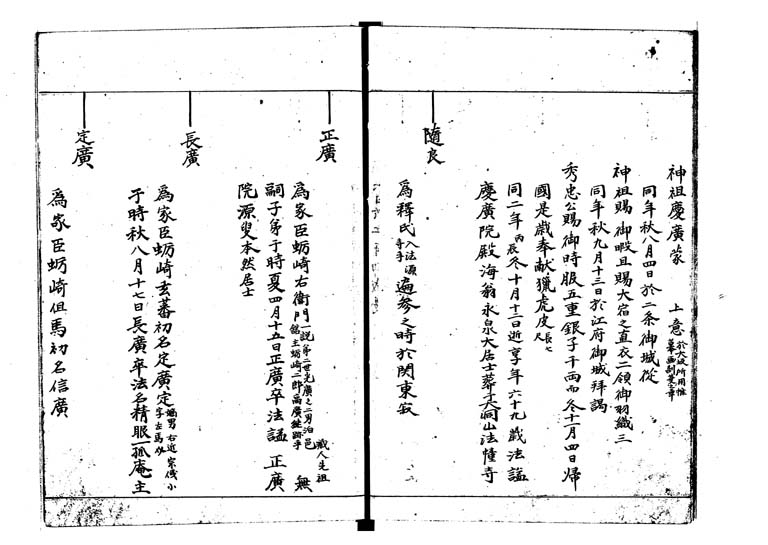 神祖慶廣蒙　上意於大坂所用惟幕画割菱之章
同年秋八月四日於二条御城従
神祖賜御暇且賜大宿之直衣二領御羽織三
同年秋九月十三日於江府御城拜謁
秀忠公賜御時服五重銀子千両而冬十一月四日歸
國是歳奉献猟虎皮長七尺
同二年丙辰冬十月十二日逝享年六十九歳法諡
慶廣院殿海翁永泉大居士葬于大洞山法幢寺
隨良
為釋氏入法源寺手遍参之時於関東寂
正廣
為家臣蛎崎右衞門一説第二世光廣之二男泊邑舘主蛎崎二郎高廣継跡乎職人先祖　無
嗣子弟于時夏四月十五日正廣卒法諡正廣
院源叟本然居士
長廣
為家臣蛎崎玄蕃初名定廣定嫡男右近宗儀小字左馬
于時秋八月十七日長廣卒法名精眼一孤庵主
定廣
為家臣蛎崎但馬初名信廣